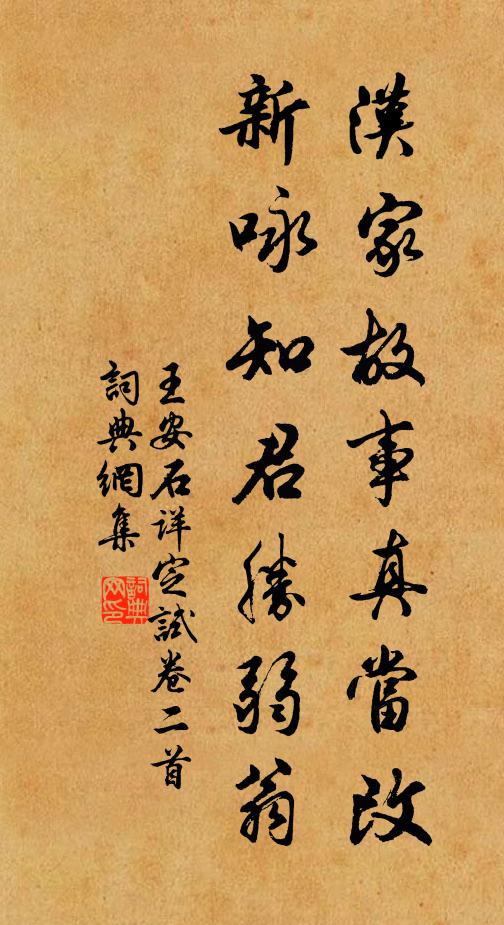 漢家故事真當改
新咏知君勝弱翁
王安石详定試卷二首
詞典網集
詞典網印